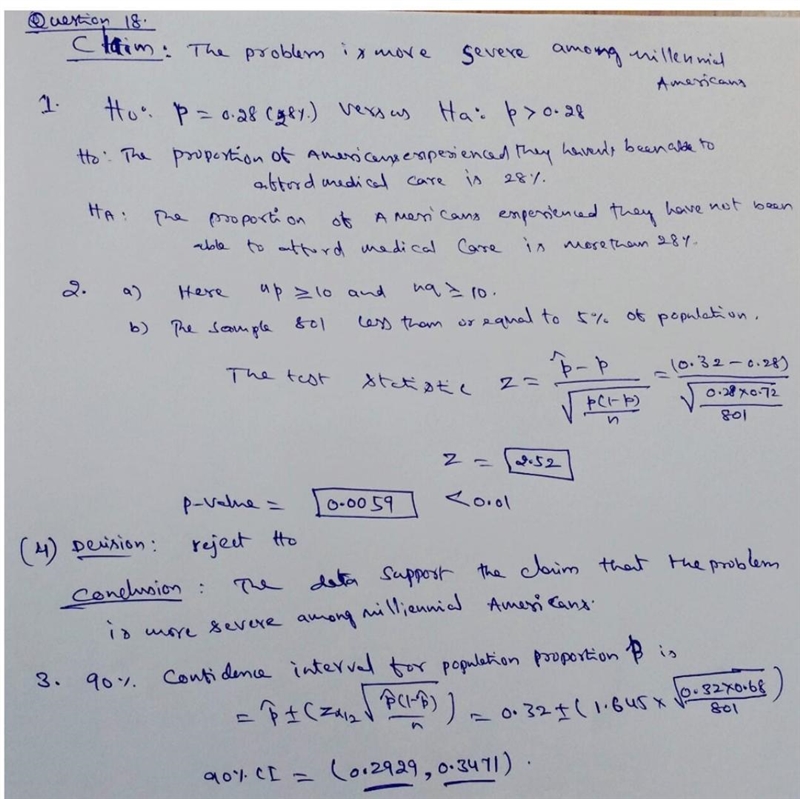 Question 18.
Claim: The problem is more severe among millennial
Americans
1. H0: p = 0.28 (28%) versus Ha: p > 0.28
H0: The proportion of Americans experienced they haven't been able to
afford medical care is 28%.
HA: The proportion of Americans experienced they have not been
able to afford medical care is more than 28%.
2. a) Here np ≥ 10 and nq ≥ 10.
b) The sample 801 less than or equal to 5% of population.
The test statistic z = (p̂ - p) / √(p(1-p)/n) = (0.32 - 0.28) / √(0.28×0.72/801)
z = 2.52
p-value = 0.0059 < 0.01
(4) Decision: reject H0
Conclusion: The data support the claim that the problem
is more severe among milliennial Americans.
3. 90% Confidence interval for population proportion p is
= p̂ ± (zα/2 √(p̂(1-p̂)/n)) = 0.32 ± (1.645 × √(0.32×0.68/801))
90% CI = (0.2929, 0.3471).